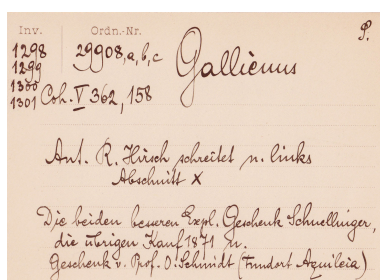 Inv. Ordn.-Nr. P.
1298 29908,a,b,c Gallienus
1299
1300
1301 Coh. V 362, 158
Ant. R. Hirsch schreitet n. links
Abschnitt X
Die beiden besseren Expl. Geschenk Schnellinger,
die übrigen Kauf 1871 u.
Geschenk v. Prof. O. Schmidt (Fundort Aquileia)